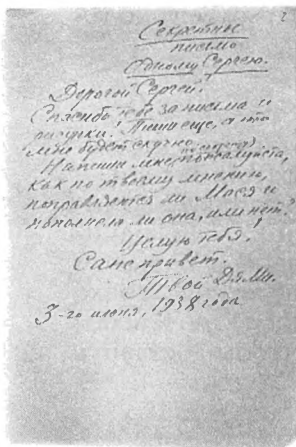 2
Секретное
письмо
одному Сергею.
Дорогой Сергей.
Спасибо тебе за письма и
рисунки. Пиши еще, а то
мне будет скучно.
Напиши мне, пожалуйста,
как по твоему мнению,
поправляется ли Мася и
пополнела ли она, или нет.
Целую тебя,
Сане привет.
Твой Дя Ми.
3-го июня, 1938 года